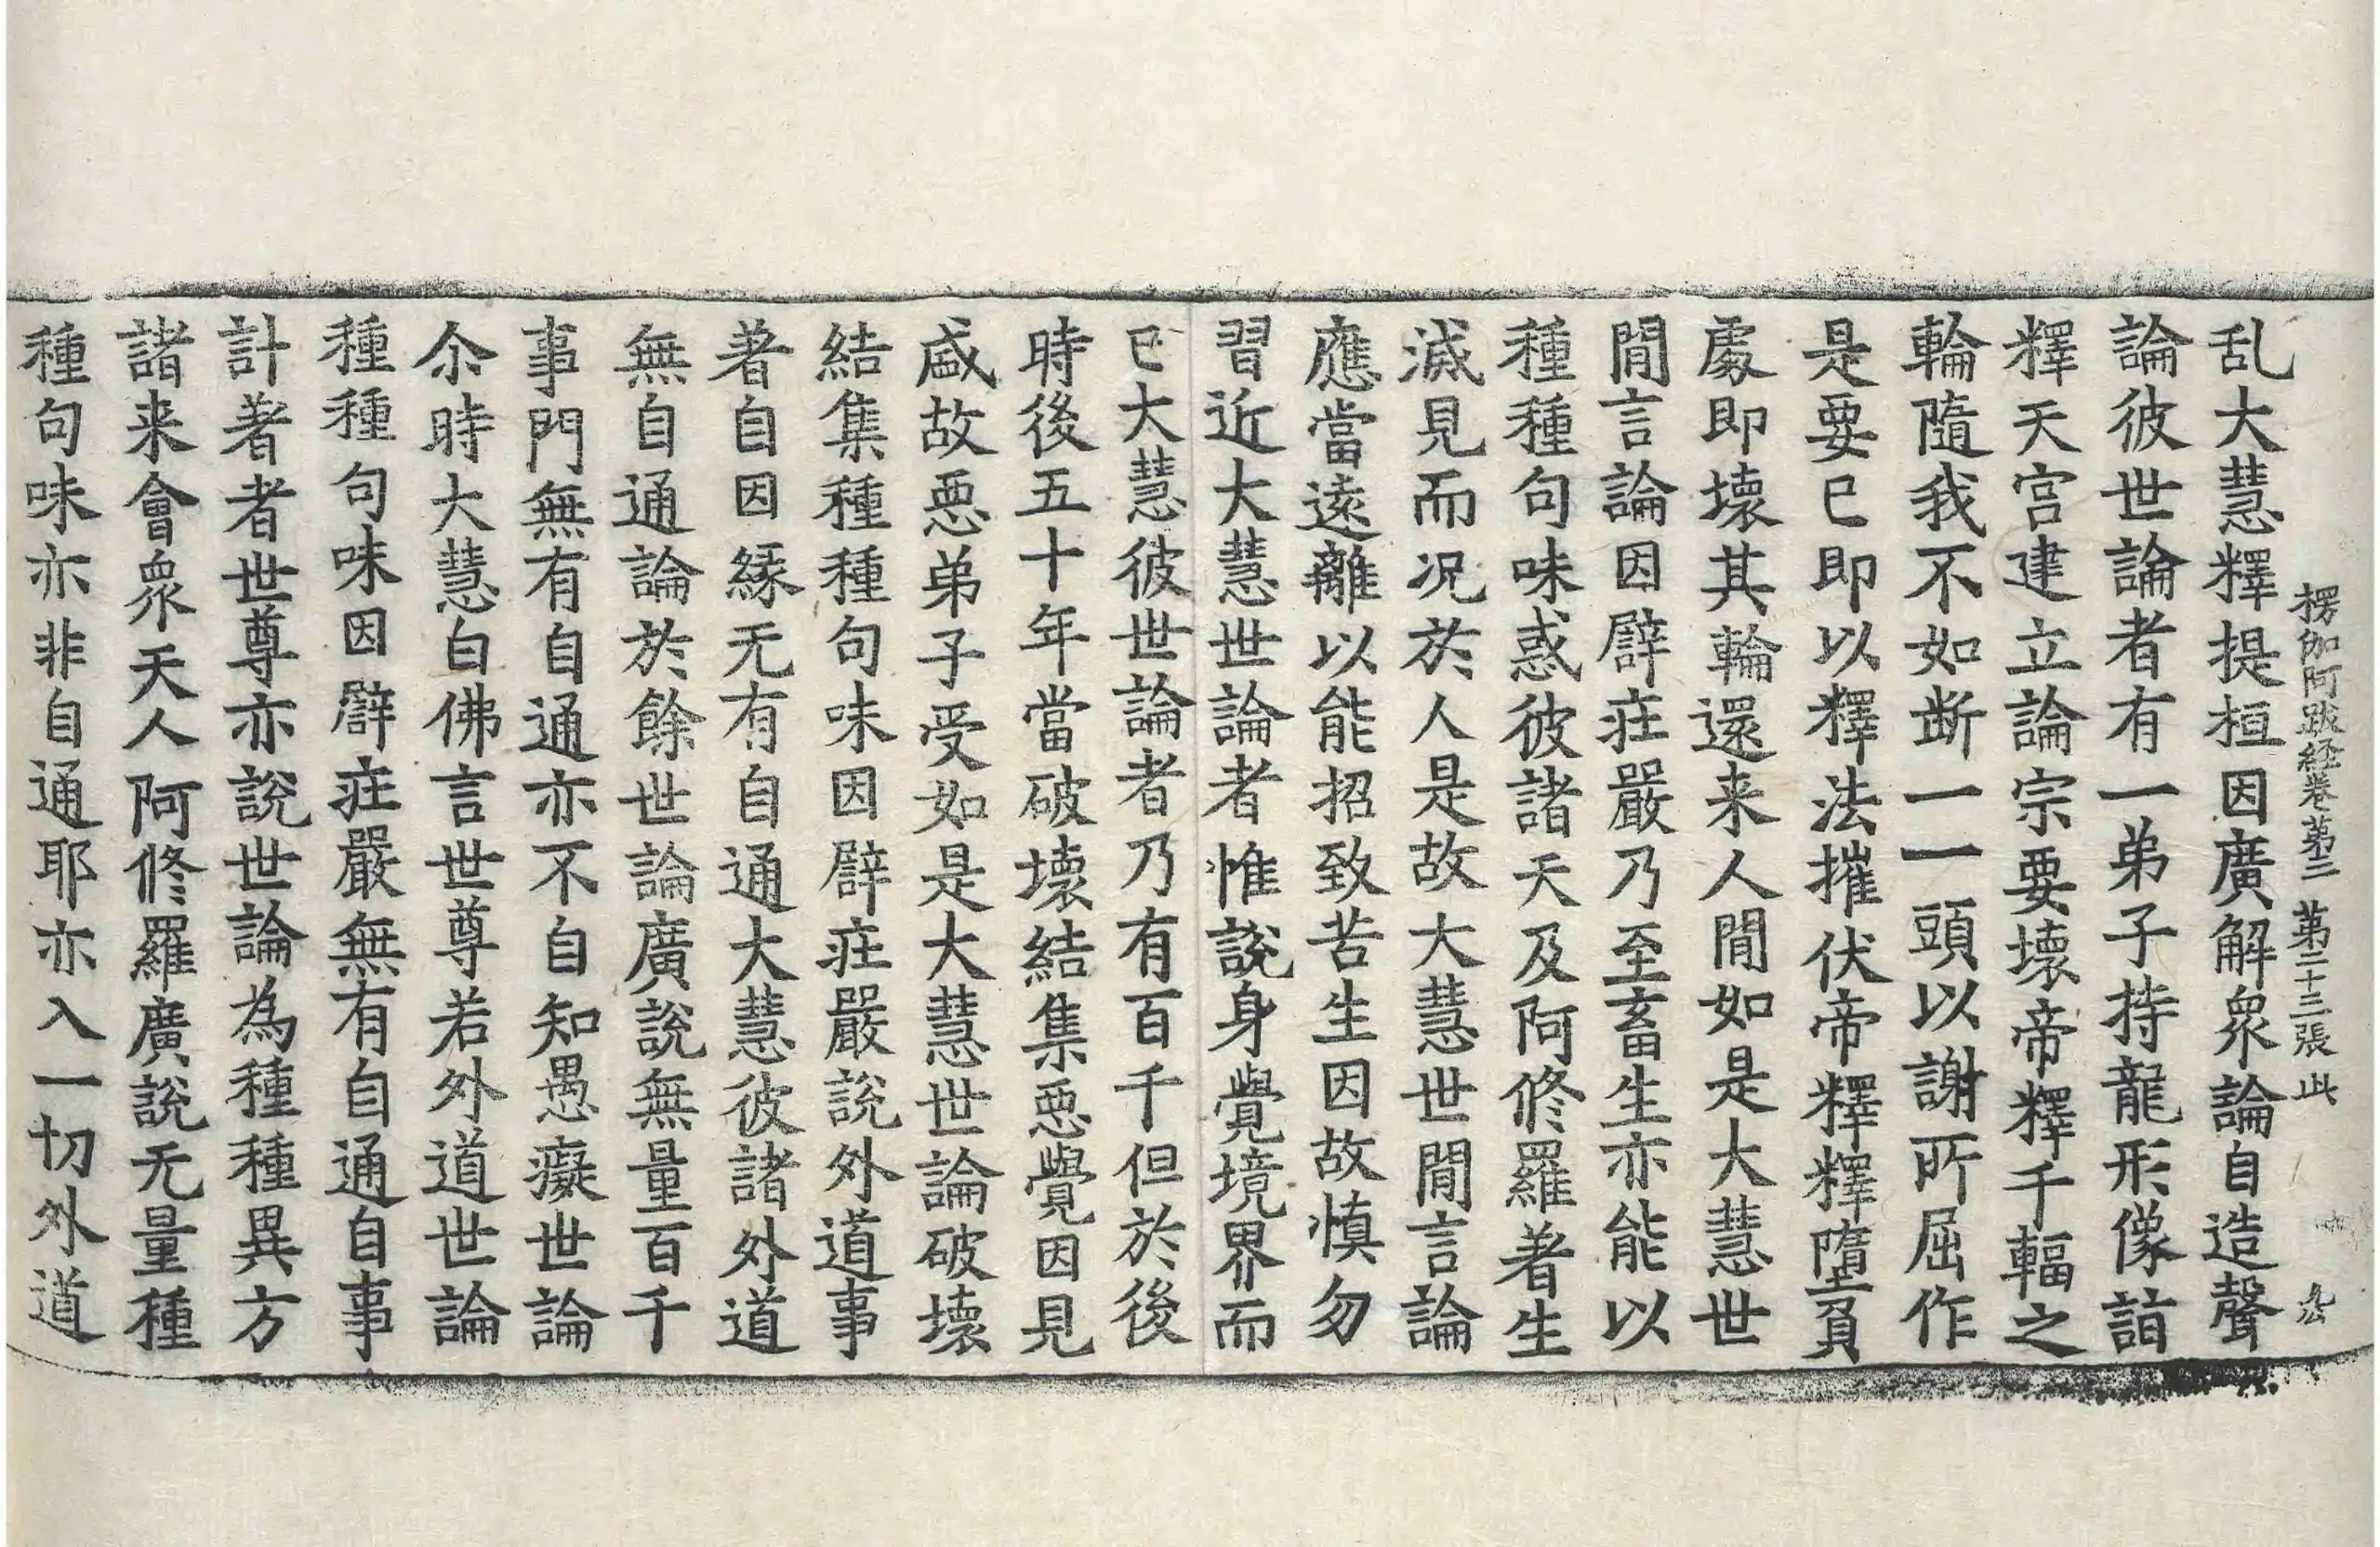 楞伽阿跋経卷苐三 苐二十三張 此
乱大慧釋提桓因廣解衆論自造聲
論彼世論者有一弟子持龍形像詣
釋天宫建立論宗要壞帝釋千輻之
輪隨我不如斷一一頭以謝所屈作
是要已即以釋法摧伏帝釋釋墮負
處即壞其輪還来人閒如是大慧世
閒言論因譬莊嚴乃至畜生亦能以
種種句味惑彼諸天及阿修羅著生
滅見而况於人是故大慧世閒言論
應當遠離以能招致苦生因故慎勿
習近大慧世論者惟說身覺境界而
已大慧彼世論者乃有百千但於後
時後五十年當破壞結集惡覺因見
盛故惡弟子受如是大慧世論破壞
結集種種句味因譬莊嚴說外道事
著自因緣无有自通大慧彼諸外道
無自通論於餘世論廣說無量百千
事門無有自通亦不自知愚癡世論
尒時大慧白佛言世尊若外道世論
種種句味因譬莊嚴無有自通自事
計著者世尊亦說世論為種種異方
諸来會衆天人阿修羅廣說无量種
種句味亦非自通耶亦入一切外道